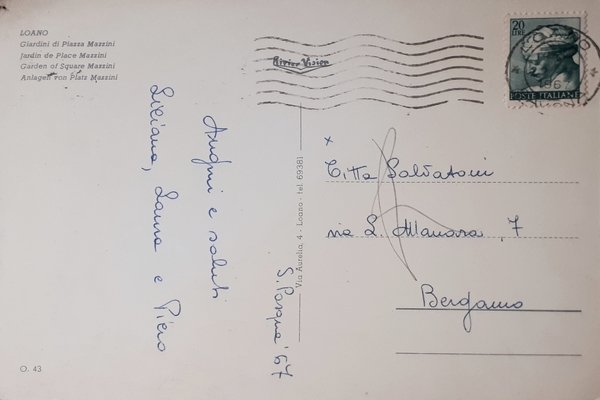 LOANO
Giardini di Piazza Mazzini
Jardin de Place Mazzini
Garden of Square Mazzini
Anlagen von Platz Mazzini
20
LIRE
POSTE ITALIANE
Auguri e saluti
Liliana, Laura e Piero
S. Pasqua '67
Via Aurelia, 4 - Loano - tel. 69381
x
Citta Salvatoni
via L. Manara, 7
Bergamo
O. 43